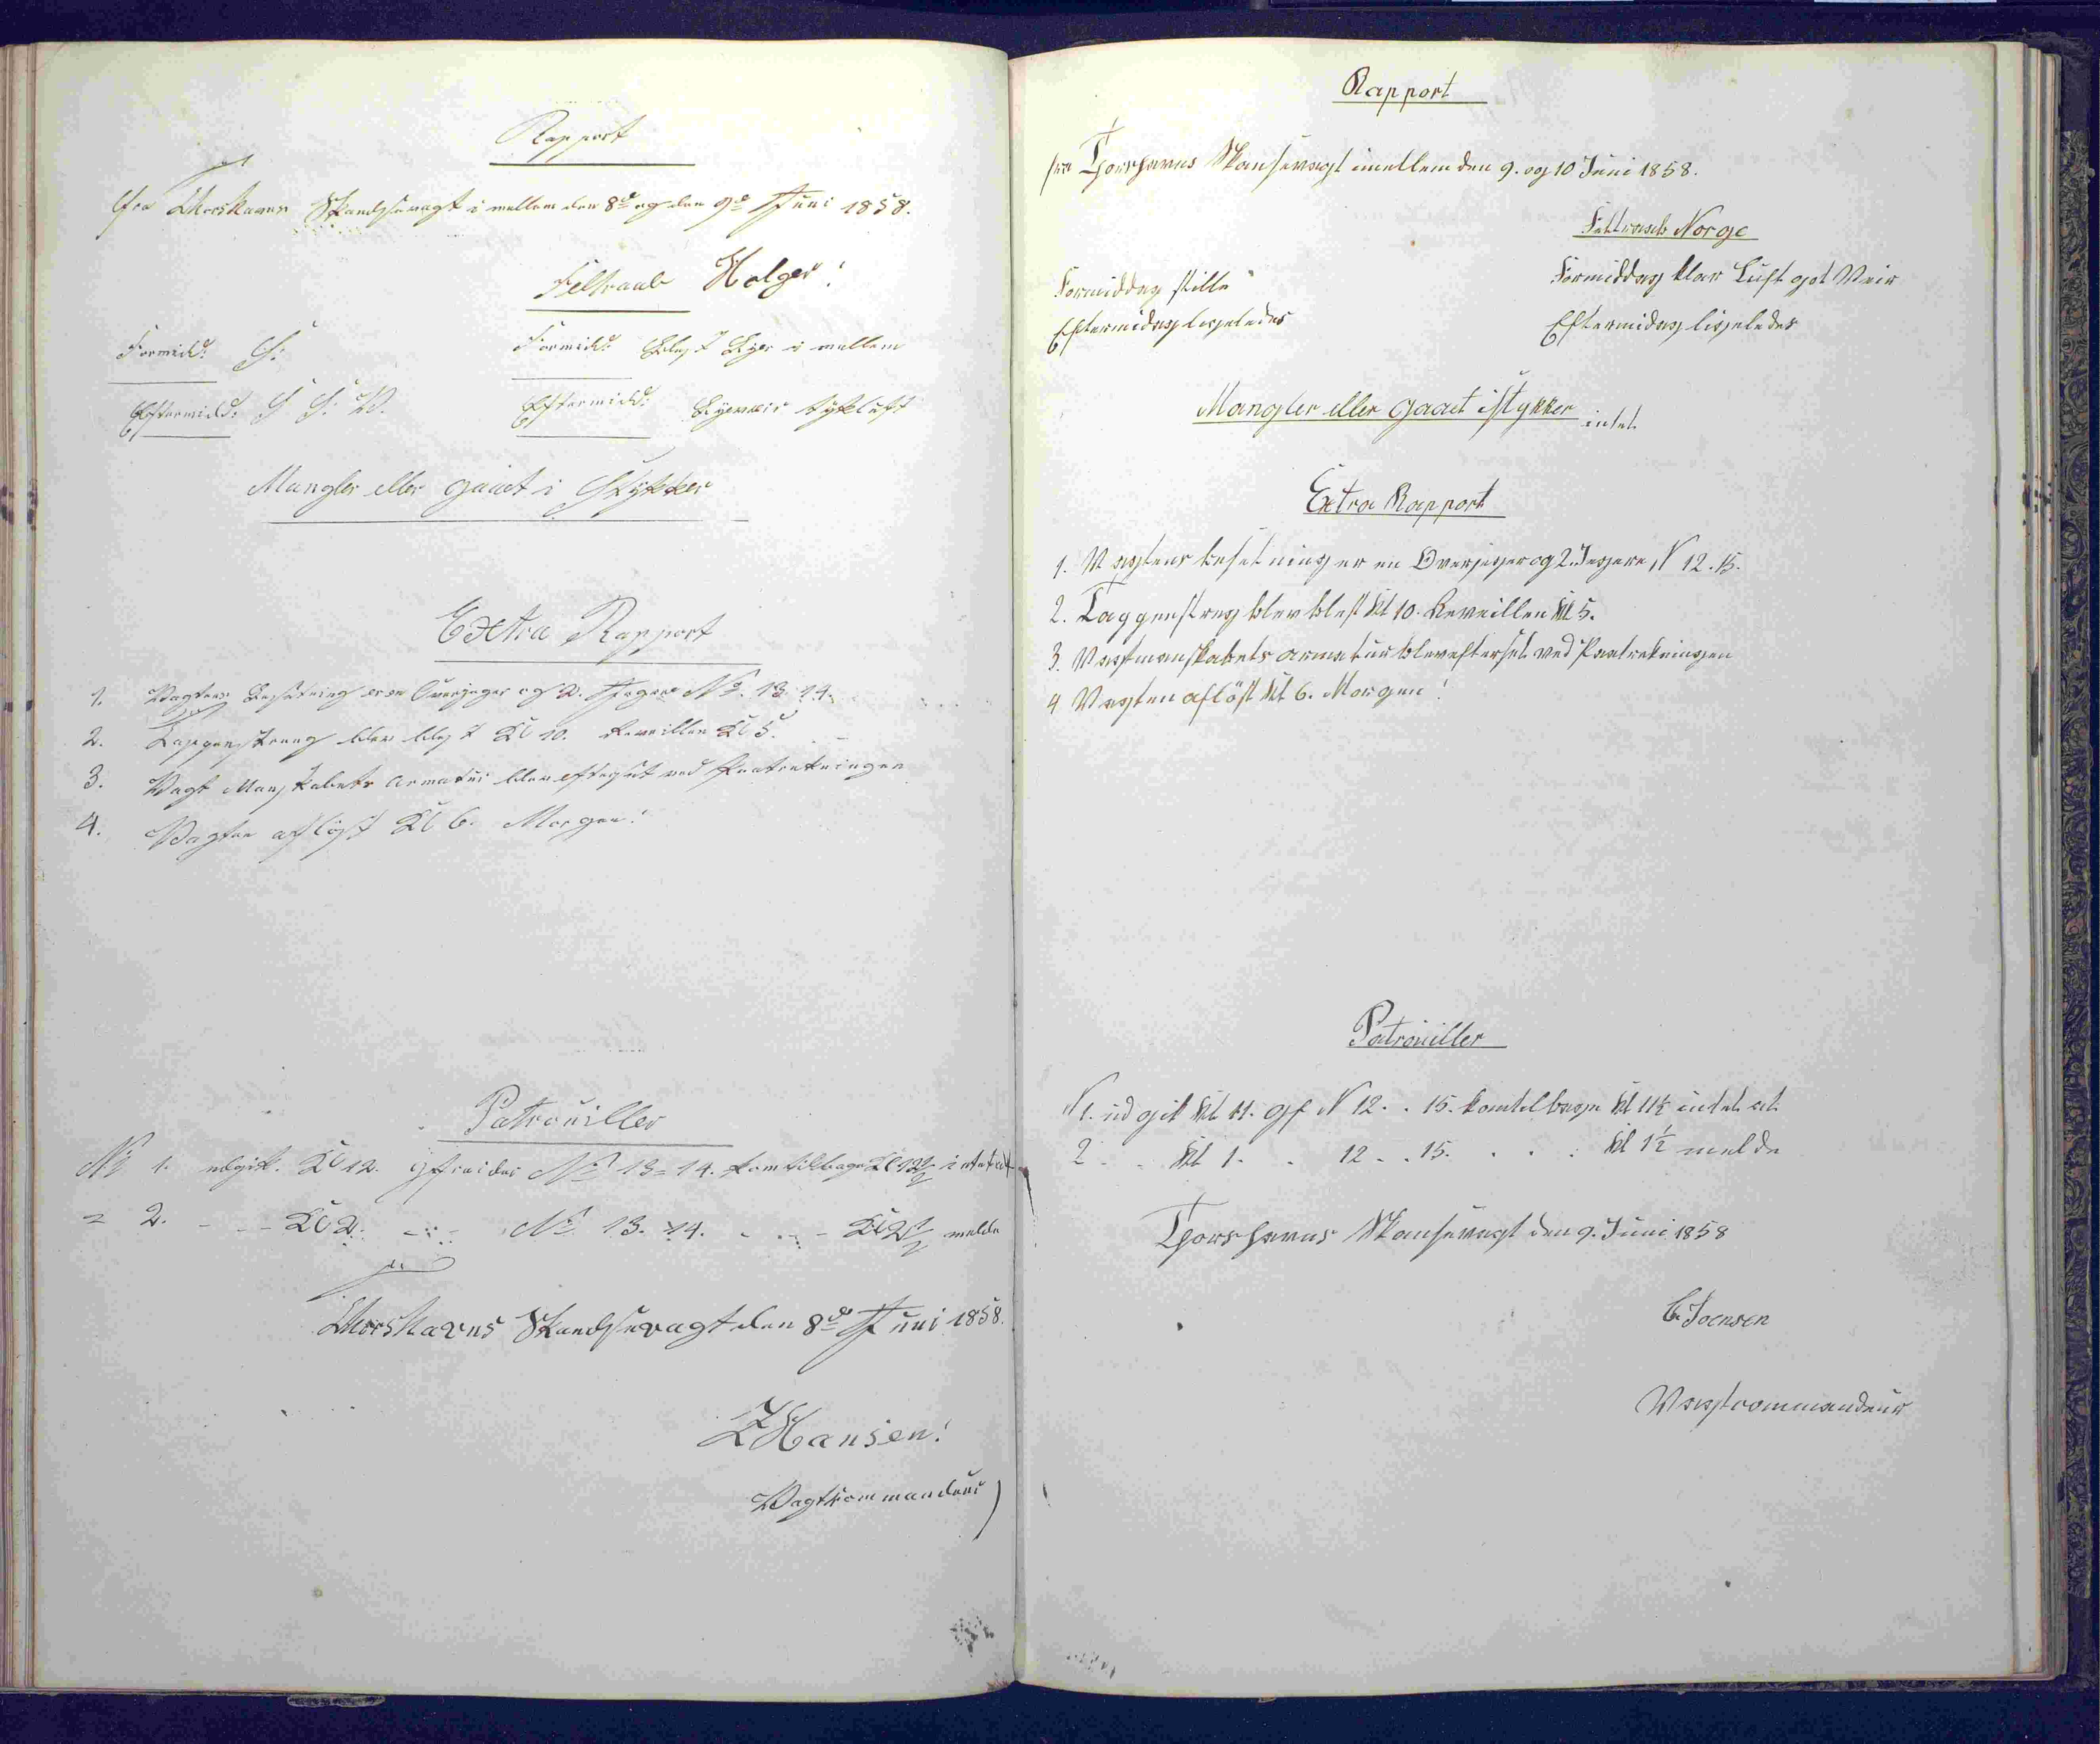 Rapport
fra Thorshavns Skandsevagt i mellem den 8de og den 9de Juni 1858.
Feltraab Holger!
Formidd: S: Formidd: Blæst Byer i mellem
Eftermidd: S S: V. Eftermidd: Byeveir tykluft
Mangler eller gaaet i Stykker
Extra Rapport
1. Vagtens Besætning er en Overjæger og 2. Jægere No. 13. 14.
2. Tappenstreng blev blæst Kl 10. Reveillen Kl 5.
3. Vagt Manskabets Armatur blev efterset ved Paatrækningen
4. Vagten afløst Kl 6. Morgen!
Patrouiller
No 1. udgik. Kl 12. Gefreider No 13 = 14. kom tilbage Kl 12 1/2 intet at
= 2. - - - Kl 2. - - - No 13. 14. - - - Kl 2 1/2 melde
Thorshavns Skandsevagt den 8de Juni 1858.
Z Hansen!
Vagtkommandeur
Rapport
fra Thorshavns Skansevagt imellem den 9. og 10 Juni 1858.
Feltraab Norge
Formiddag stille Formiddag klar Luft got Veir
Eftermidag ligeledes Eftermidag ligeledes
Mangler eller gaaet istykker intet
Extra Rapport
1. Vagtens besetning er en Overjeger og 2. Jegere, N 12. 15.
2. Taggenstreg blev blest Kl 10. Reveillen Kl 5.
3. Vagtmanskabets armatur blev efterset ved Paatrekningen
4 Vagten afløst Kl 6. Morgen!
Patrouiller
N 1. ud gik Kl 11. gf N 12. . 15. kom tilbage Kl 11½ intet at
2 . . Kl 1. . 12 . . 15. . . . Kl 1½ melde
Thorshavns Skansevagt den 9. Juni 1858
C. Joensen
Vagtcommandeur